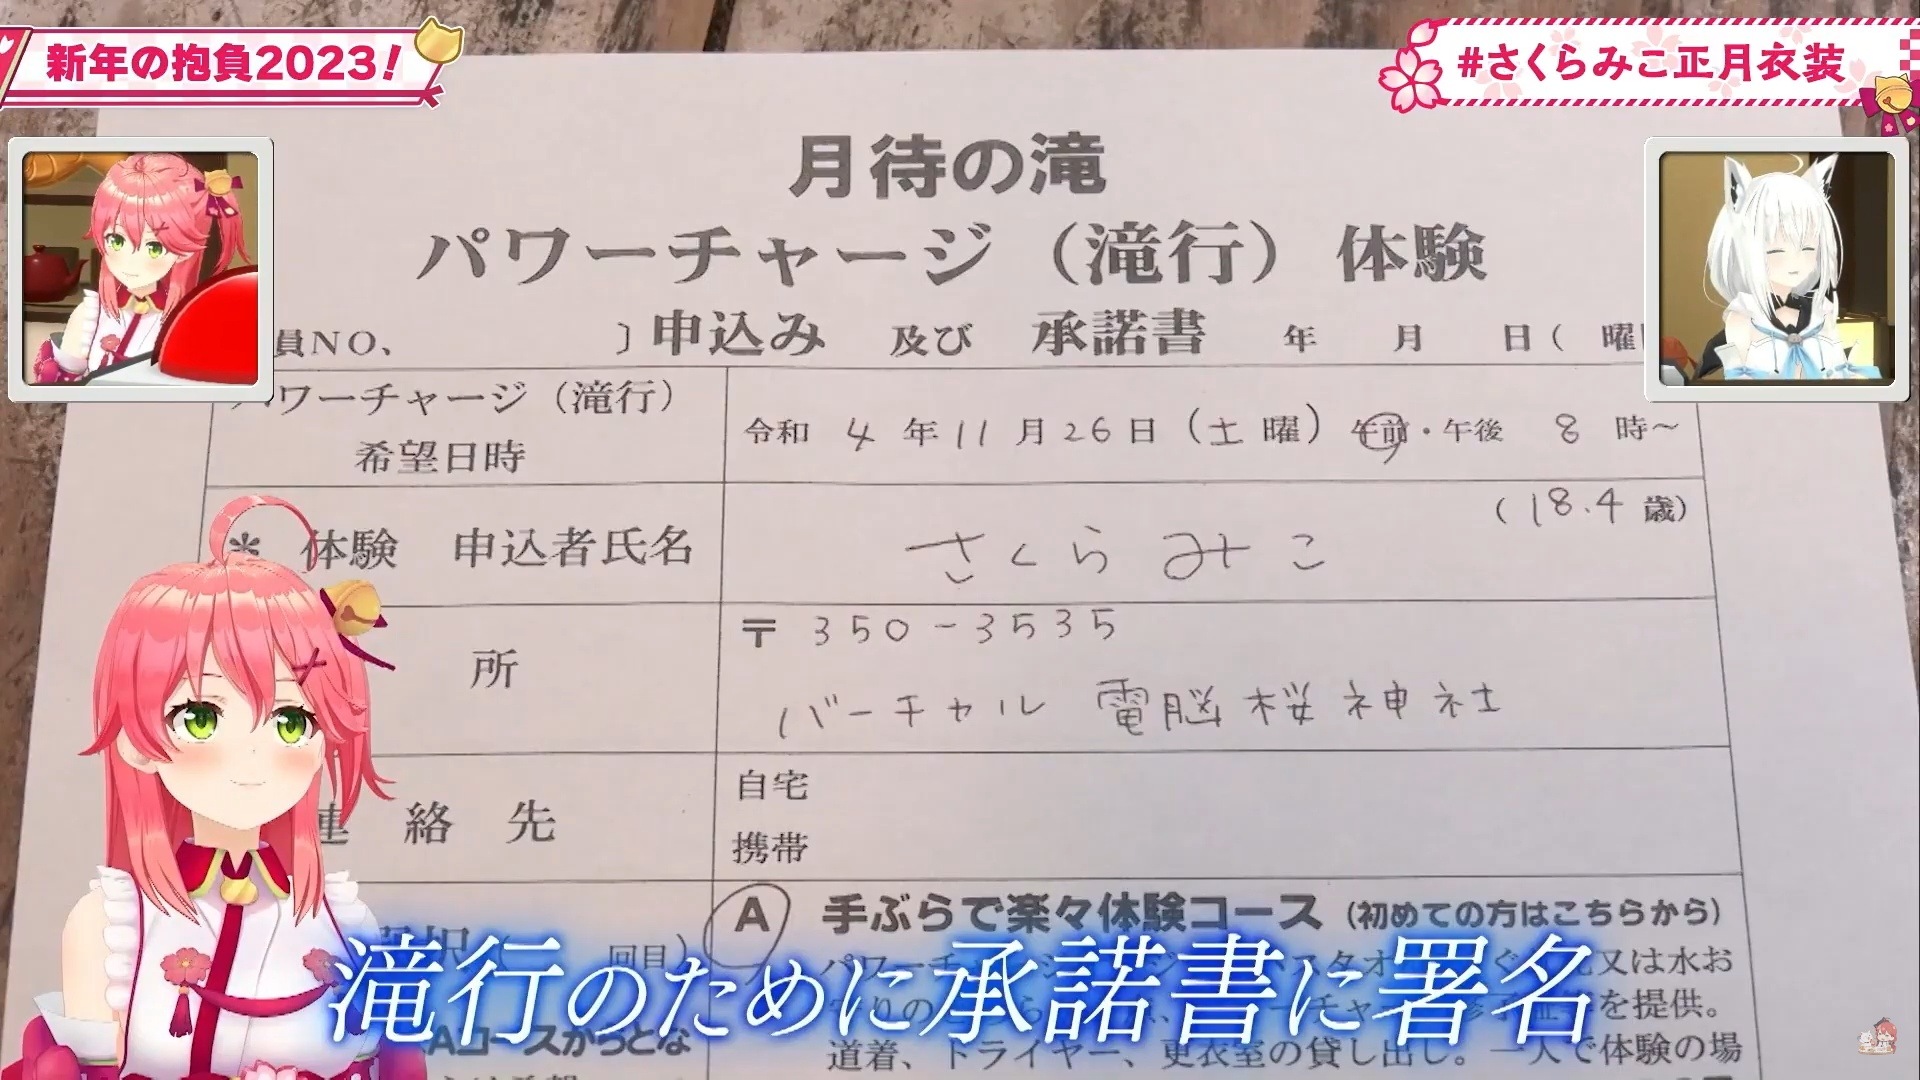 新年の抱負2023!
#さくらみこ正月衣装
月待の滝
パワーチャージ（滝行）体験
員NO、 〕申込み 及び 承諾書 年 月 日（ 曜
パワーチャージ（滝行）
希望日時
令和 4 年 11 月 26 日（土 曜）午前・午後 8 時～
＊ 体験 申込者氏名
（18.4 歳）
さくら みこ
所
〒 350-3535
バーチャル 電脳桜神社
連 絡 先
自宅
携帯
回目）
A 手ぶらで楽々体験コース（初めての方はこちらから）
又は水お
を提供。
道着、ドライヤー、更衣室の貸し出し。一人で体験の場
滝行のために承諾書に署名